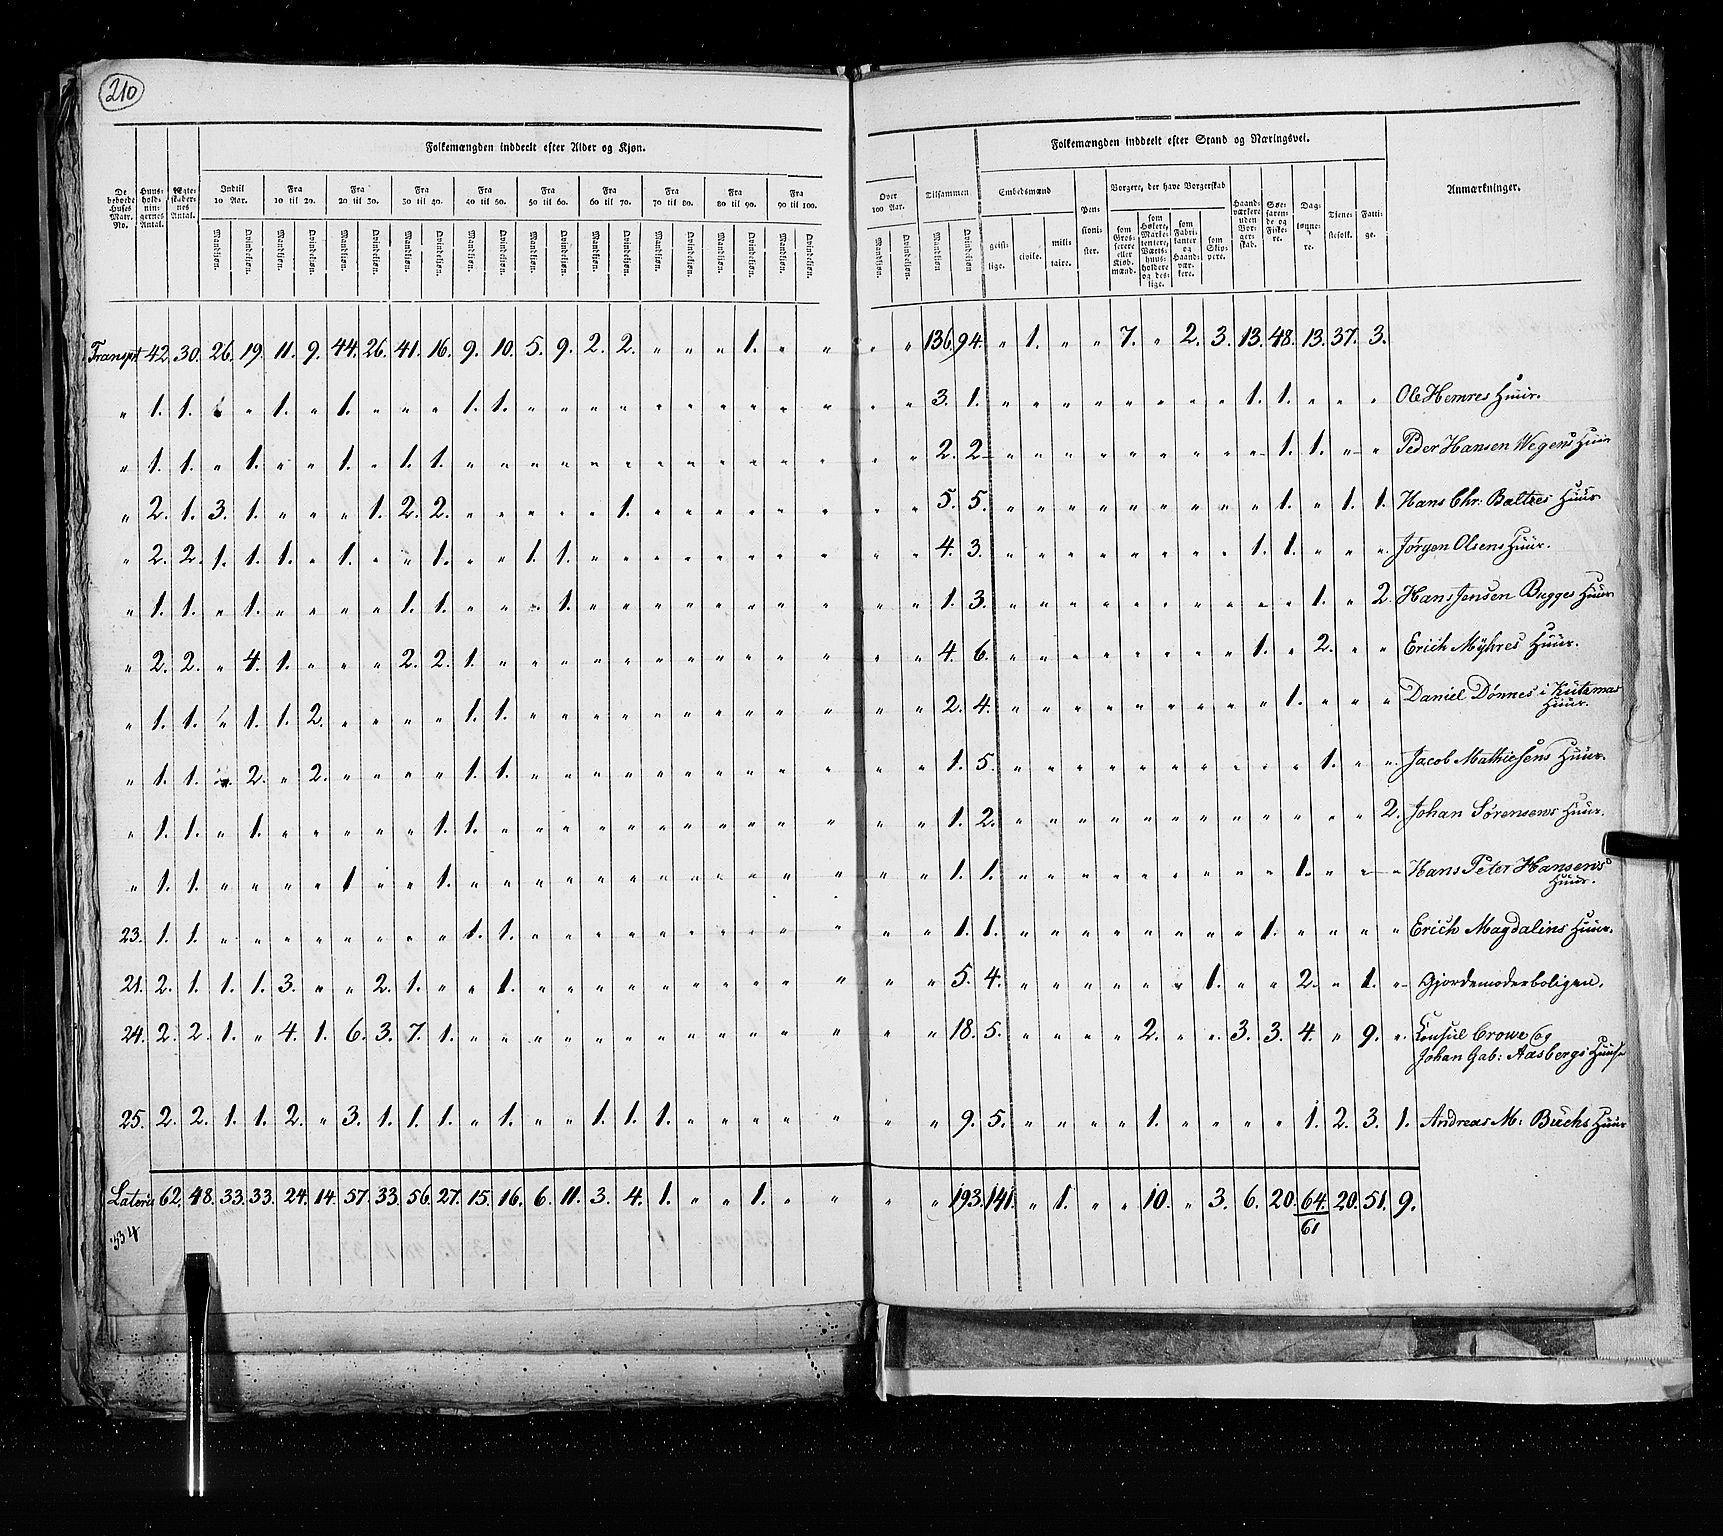 210
Folkemængden inddeelt efter Alder og Kjøn.
Folkemængden inddeelt efter Stand og Næringsvei.
De beboede Huses Matr. No.
Huus-holdningernes Antal.
Ægteskabernes Antal.
Indtil 10 Aar.
Fra 10 til 20.
Fra 20 til 30.
Fra 30 til 40.
Fra 40 til 50.
Fra 50 til 60.
Fra 60 til 70.
Fra 70 til 80.
Fra 80 til 90.
Fra 90 til 100.
Over 100 Aar.
Tilsammen
Embedsmænd
Pensionister.
Borgere, der have Borgerskab
Haandværkere uden Borgerskab.
Søefarende og Fiskere.
Daglønnere.
Tjenestefolk.
Fattige.
Anmærkninger.
Mandkjøn. Qvindekjøn. Mandkjøn. Qvindekjøn. Mandkjøn. Qvindekjøn. Mandkjøn. Qvindekjøn. Mandkjøn. Qvindekjøn. Mandkjøn. Qvindekjøn. Mandkjøn. Qvindekjøn. Mandkjøn. Qvindekjøn. Mandkjøn. Qvindekjøn. Mandkjøn. Qvindekjøn. Mandkjøn. Qvindekjøn. Mandkjøn Qvindekjøn.
geistlige. civile. militaire.
som Grosserere eller Kiøbmænd.
som Høkere, Marketentere, Værtshuusholdere og deslige.
som Fabrikanter og Haandværkere.
som Skippere.
Transpt 42. 30. 26. 19. 11. 9. 44. 26. 41. 16. 9. 10. 5. 9. 2. 2. " " " 1. " " " " 136. 94. " 1. " " 7. " 2. 3. 13. 48. 13. 37. 3.
" 1. 1. " 1. " 1. " " " 1. 1. " " " " " " " " " " " " 3. 1. " " " " " " " " 1. 1. " " " Ole Hemres Huus.
" 1. 1. " 1. " " 1. " 1. 1. " " " " " " " " " " " " " " 2. 2. " " " " " " " " " 1. 1. " " Peder Hansen Wegens Huus
" 2. 1. 3. 1. " " " 1. 2. 2. " " " " " 1. " " " " " " " " 5. 5. " " " " " " " " " 1. " 1. 1. Hans Chr: Baltzes Huus
" 2. 2. 1. 1. 1. " 1. " " 1. " " 1. 1. " " " " " " " " " " 4. 3. " " " " " " " " 1. 1. " " " Jørgen Olsens Huus.
" 1. 1. " 1. " " " " 1. 1. " " " 1. " " " " " " " " " " 1. 3. " " " " " " " " " " 1. " 2. Hans Jensen Bugges Huus
" 2. 2. " 4. 1. " " " 2. 2. 1. " " " " " " " " " " " " " 4. 6. " " " " " " " " 1. " 2. " " Erich Myhres Huus.
" 1. 1. " 1. 1. 2. " " " " 1. 1. " " " " " " " " " " " " 2. 4. " " " " " " " " " 1. " " " Daniel Dønnes i
Huus.
" 1. 1. " 2. " 2. " " " " 1. 1. " " " " " " " " " " " " 1. 5. " " " " " " " " " " 1. " " Jacob Mathiesens Huus.
" 1. 1. " 1. " " " " " 1. 1. " " " " " " " " " " " " " 1. 2. " " " " " " " " " " " " 2. Johan Sørensens Huus.
" 1. 1. " " " " 1 " " 1. " " " " " " " " " " " " " " 1. 1. " " " " " " " " " " 1. " " Hans Peter Hansens
Huus.
23. 1. 1. " " " " " " " " 1. 1. " " " " " " " " " " " " 1. 1. " " " " " " " " " 1. " " " " Erich Magdalins Huus.
21. 2. 1. 1. 1. 3. " " 2. 1. " " 1. " " " " " " " " " " " " 5. 4. " " " " " " " 1. " " 2. " 1. " Gjordemoderboligen.
24. 2. 2. 1. " 4. 1. 6. 3. 7. 1. " " " " " " " " " " " " " " 18. 5. " " " " 2. " " 3. 3. 4. " 9. " Consul Crowe og
Johan Gab: Aasbergs Huuse
25. 2. 2. 1. 1. 2. " 3. 1. 1. 1. " 1. " " 1. 1. 1. " " " " " " " 9. 5. " " " " 1. " " " " 1. 2. 3. 1. Andreas M: Buchs Huus
Lateris 62. 48. 33. 33. 24. 14. 57. 33. 56. 27. 15. 16. 6. 11. 3. 4. 1. " " 1. " " " " 193. 141. " 1. " " 10. " 3. 6. 20. 64. 20. 51. 9.
334 61